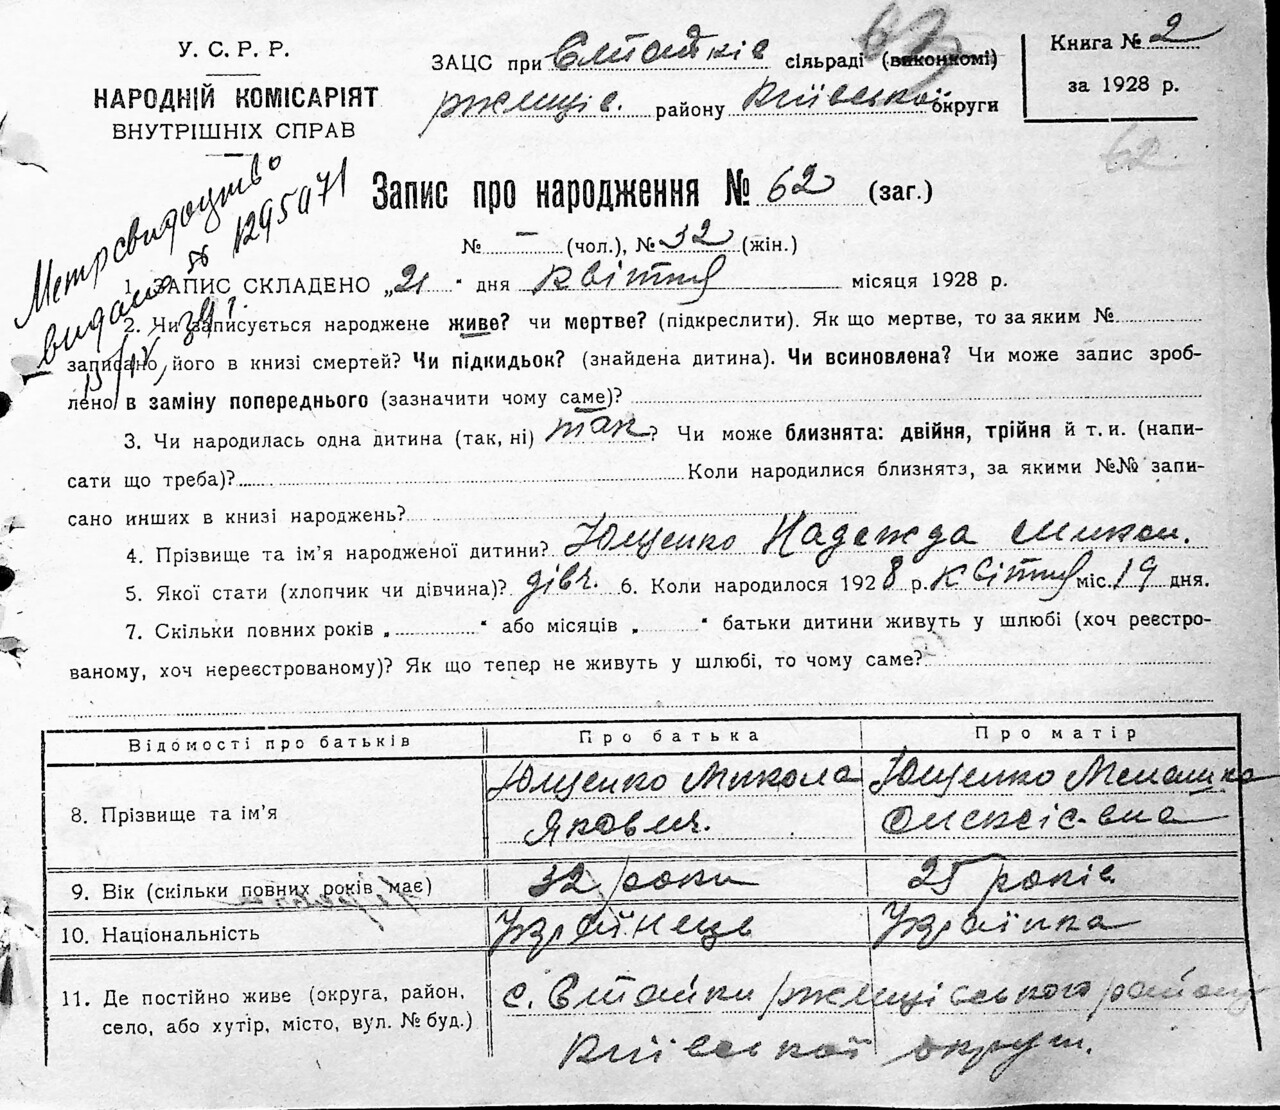 У. С. Р. Р.
НАРОДНІЙ КОМІСАРІЯТ
ВНУТРІШНІХ СПРАВ
ЗАЦС при сільраді (виконкомі)
району Київської округи
Книга № 2
за 1928 р.
62
Метрсвидоцтво
видано № 1295071
Запис про народження № 62 (заг.)
№ – (чол.), № 32 (жін.)
1. ЗАПИС СКЛАДЕНО „21“ дня квітня місяця 1928 р.
2. Чи записується народжене живе? чи мертве? (підкреслити). Як що мертве, то за яким №
записано його в книзі смертей? Чи підкидьок? (знайдена дитина). Чи всиновлена? Чи може запис зроб-
лено в заміну попереднього (зазначити чому саме)?
3. Чи народилась одна дитина (так, ні) так? Чи може близнята: двійня, трійня й т. и. (напи-
сати що треба)? Коли народилися близнята, за якими №№ запи-
сано инших в книзі народжень?
4. Прізвище та ім’я народженої дитини? Ющенко Надежда Микол.
5. Якої стати (хлопчик чи дівчина)? дівч. 6. Коли народилося 1928 р. квітня міс. 19 дня.
7. Скільки повних років „ “ або місяців „ “ батьки дитини живуть у шлюбі (хоч реєстро-
ваному, хоч нереєстрованому)? Як що тепер не живуть у шлюбі, то чому саме?
Відомості про батьків Про батька Про матір
8. Прізвище та ім’я Ющенко Микола Ющенко
Яковл. Олексіевна
9. Вік (скільки повних років має) 32 роки 25 років
10. Національність Українець Українка
11. Де постійно живе (округа, район, с. ржищівського району
село, або хутір, місто, вул. № буд.) Київської округи.